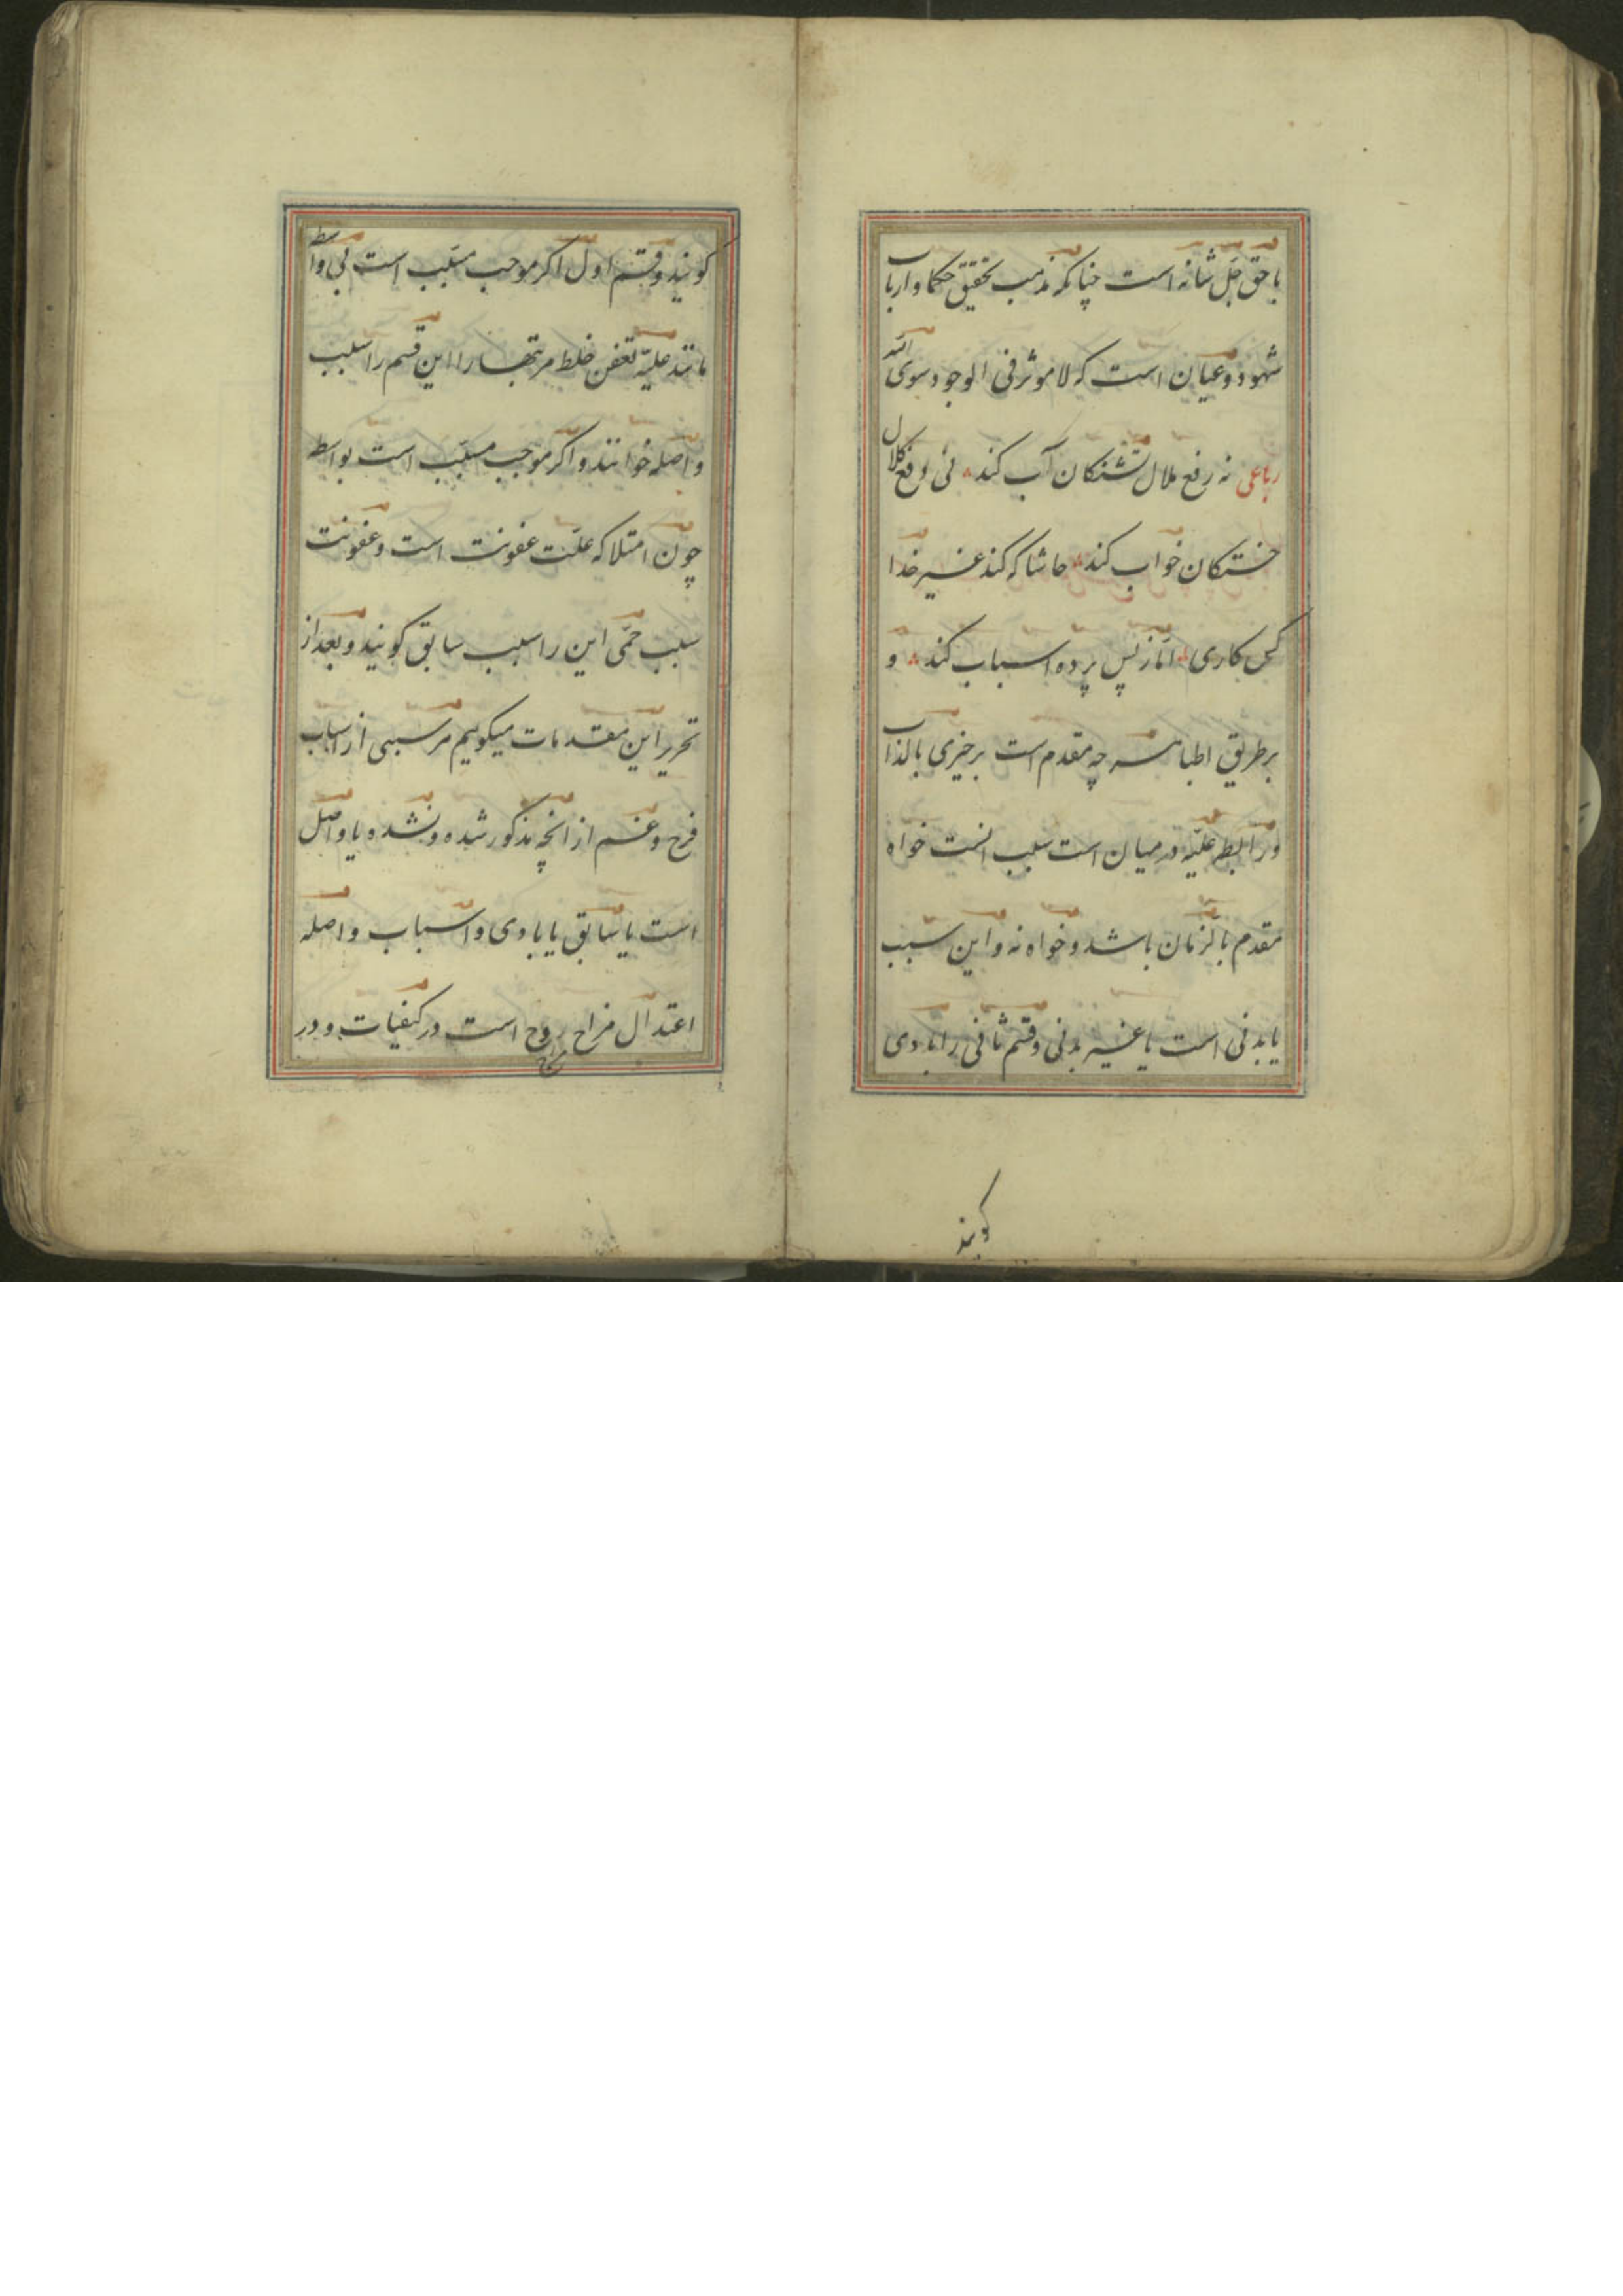 با حق جل شانه است چنانکه مذهب تحقیق حکما و ارباب
شهود و عیان است که لا موثر فی الوجود سوی الله
رباعی نه رفع ملال تشنکان آب کند نی دفع کلال
خستکان خواب کند حاشا که کند غیر خدا
کس کاری اما ز پس پرده اسباب کند و
بر طریق اطبا هر چه مقدم است بر چیزی بالذات
و رابطه علیه در میان است سبب انست خواه
مقدم بالزمان باشد و خواه نه و این سبب
یا بدنی است یا غیر بدنی و قسم ثانی را بادی
کویند
کویند و قسم اول اکر موجب مسبب است بی واسطه
مانند علیه تعفن خلط مر تبها را این قسم را سبب
واصله خوانند و اکر موجب مسبب است بواسطه
چون امتلا که علت عفونت است و عفونت
سبب حمی این را سبب سابق کویند و بعد از
تحریر این مقدمات میکوییم هر سببی از اسباب
فرح و غم از انچه مذکور شده و نشده یا واصل
است یا سابق یا بادی و اسباب واصله
اعتدال مزاج روح است در کیفیات و در